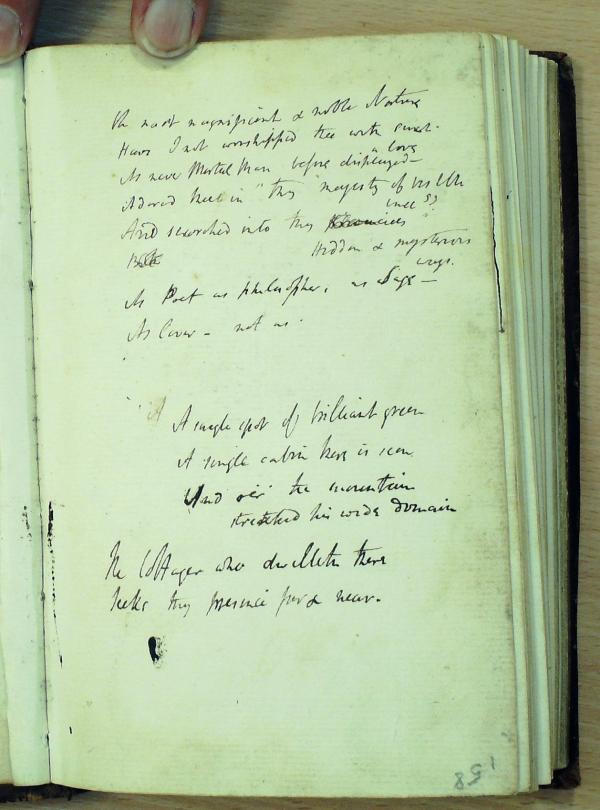 Oh most magnificent & noble Nature
Have I not worshipped thee with such
a love
As never Mortal Man before displayed—
Adored thee in thy majesty of visible
And searched into thy
Hidden & mysterious
ways.
As Poet as philosopher, as Sage—
As Lover - not as
A single spot of brilliant green
A single cabin here is seen
And o'er the mountain
stretched his wide domain
The Cottager who dwelleth there
thy presence far & near.
158